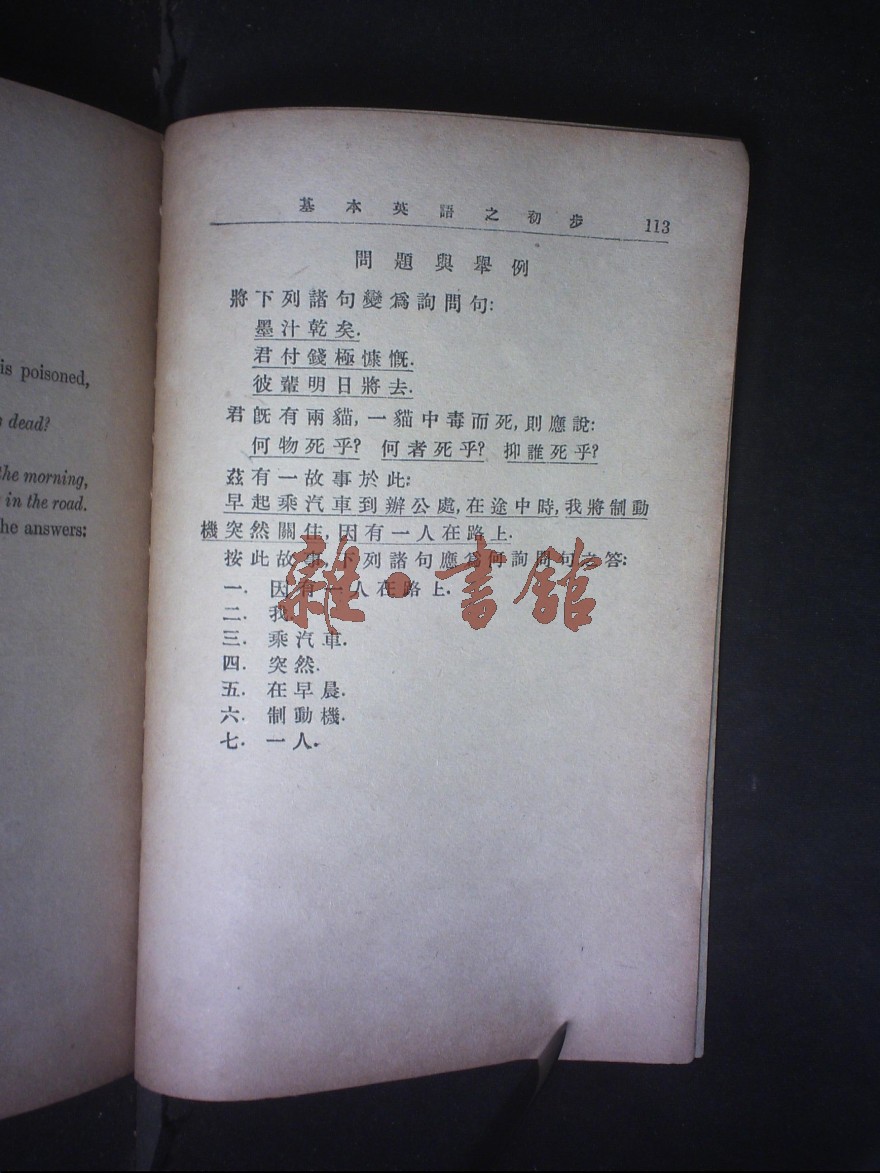 is poisoned,
dead?
the morning,
in the road.
he answers:
基本英語之初步 113
問題與舉例
將下列諸句變爲詢問句:
墨汁乾矣.
君付錢極慷慨.
彼輩明日將去.
君旣有兩貓,一貓中毒而死,則應說:
何物死乎? 何者死乎? 抑誰死乎?
茲有一故事於此:
早起乘汽車到辦公處,在途中時,我將制動
機突然關住,因有一人在路上.
按此故事,下列諸句應爲何詢問句之答:
一. 因有一人在路上.
二. 我.
三. 乘汽車.
四. 突然.
五. 在早晨.
六. 制動機.
七. 一人.
雜·書館